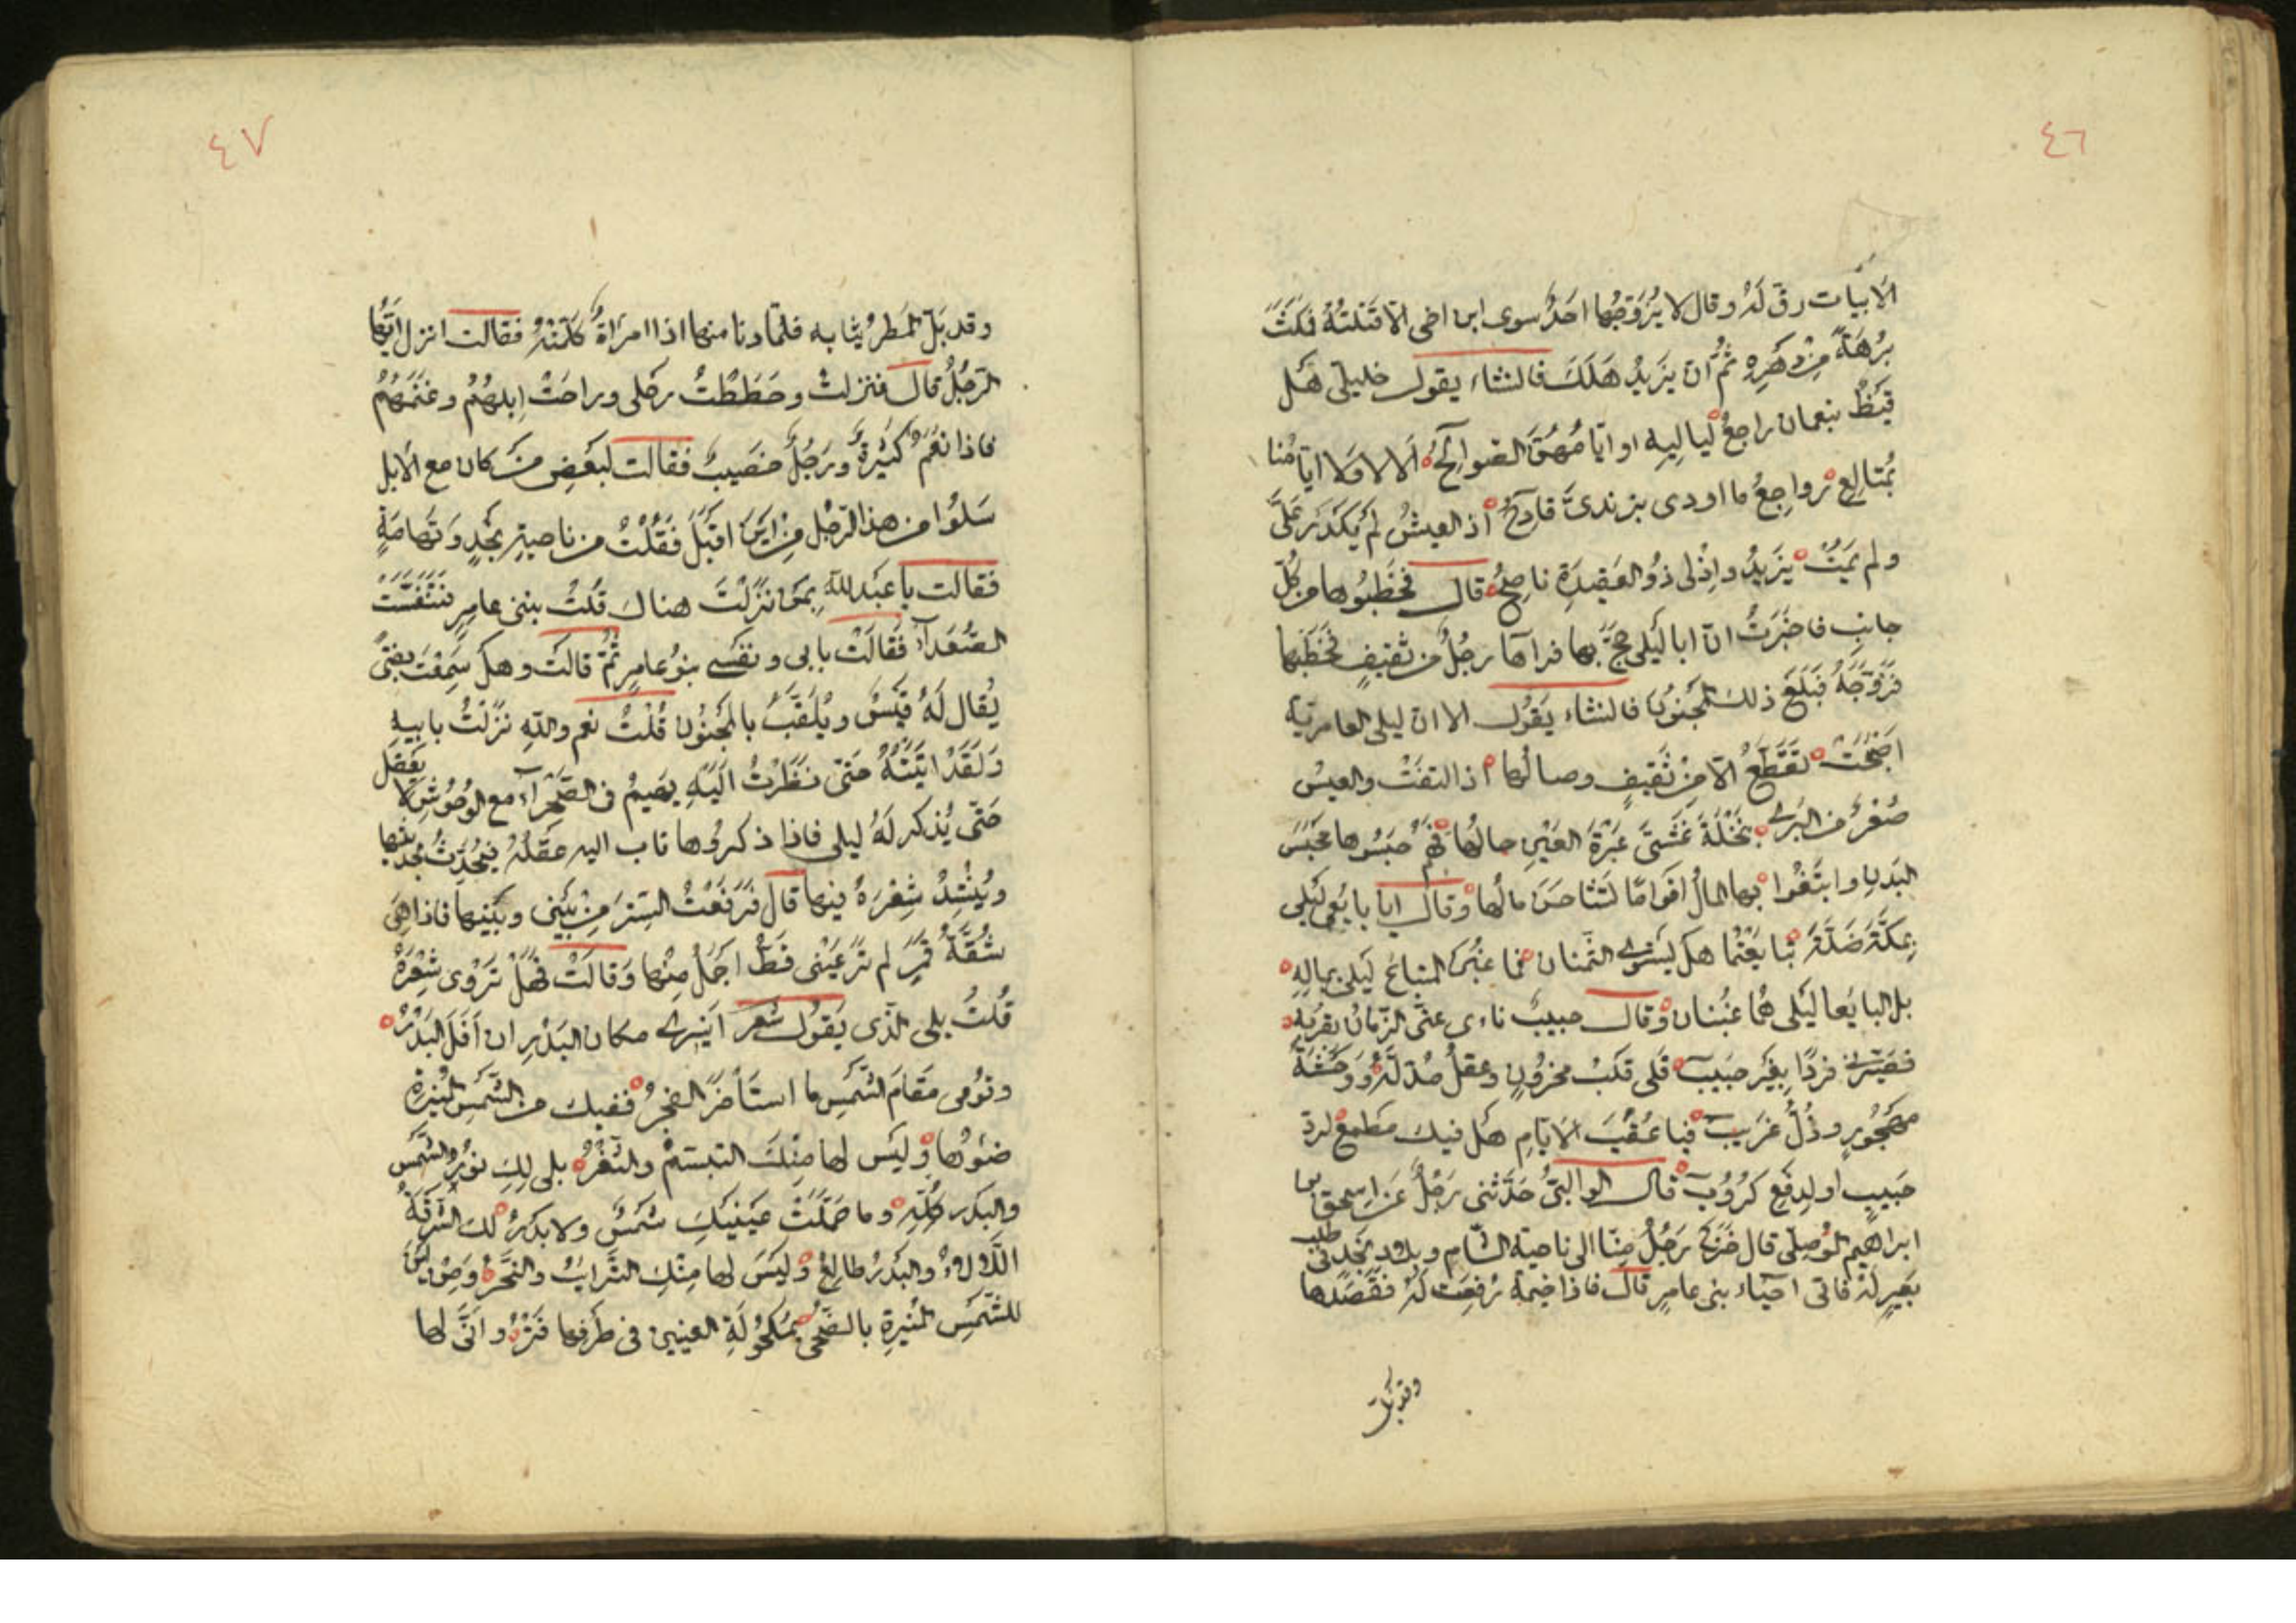 ٤٦
الابيات رق له وقال لا يزوجها احد سوى ابن اخى الا قتلته فمكث
برهة من دهره ثم ان يزيد هلك فانشاء يقول خليلى هل
قيظ بنعمان راجع لياليه او ايا مهن الصوالح الا لا ولا ايامنا
بمتالع رواجع ما اودى بزندى قادح اذ العيش لم يكدر على
ولم يمت يزيد واذ لى ذو العقيدة ناصح قال فخطبوها من كل
جانب فاخبرت ان ابا ليلى حج بها فرآها رجل من ثقيف فخطبها
فزوجه فبلغ ذلك المجنون فانشاء يقول الا ان ليلى العامرية
اضحت تقطع الا من ثقيف وصالها اذ التفت والعيس
صغر من البرى بنخلة غشى عبرة العين حالها فهم حبسوها محبس
البدن وابتغوا بها المال اقواما تشاحن مالها وقال ايا بايعى ليلى
بمكة ضلة تبايعتما هل يستوى الثمنان فما غبن المبتاع ليلى بماله
بل البايعا ليلى هما غبنان وقال حبيب ناءى عنى الزمان بقربه
فصيرنى فردا بغير حبيب فلى قلب محزون وعقل مدله ووحشة
مهجور وذل غريب فيا عقب الايام هل فيك مطمع لرد
حبيب او لدفع كروب قال الوالبى حدثنى رجل عن اسحق بن
ابراهيم الموصلى قال خرج رجل منا الى ناحية الشام وبلاد نجد فى طلب
بعير له فاتى احياء بنى عامر قال فاذا خيمة رفعت له فقصدها
وقد بل
٤٧
وقد بل المطر ثيابه فلما دنا منها اذا امراة كلمته فقالت انزل ايها
الرجل قال فنزلت وحططت رحلى وراحت ابلهم وغنمهم
فاذا نعم كثيرة ورجل خصيب فقالت لبعض من كان مع الابل
سلوا من هذا الرجل من اين اقبل فقلت من ناحية نجد وتهامة
فقالت يا عبد الله بمن نزلت هناك قلت ببنى عامر فتنفست
الصعدآء فقالت بابى ونفسى بنو عامر ثم قالت وهل سمعت بفتى
يقال له قيس ويلقب بالمجنون قلت نعم والله نزلت بابيه
ولقد اتيته حتى نظرت اليه يهيم فى الصحرآء مع الوحوش لا يعقل
حتى يذكر له ليلى فاذا ذكروها ثاب اليه عقله فيحدث بحديثها
وينشد شعره فيها قال فرفعت الستر من بينى وبينها فاذا هى
شقة قمر لم تر عينى قط اجمل منها وقالت فهل تروى شعره
قلت بلى الذى يقول شعر انيرى مكان البدر ان افل البدر
وقومى مقام الشمس ما استأخر الفجر ففيك من الشمس المنيرة
ضوئها وليس لها منك التبسم والثغر بلى لك نور الشمس
والبدر كله وما حملت عينيك شمس ولا بدر لك الشرقة
اللالاء والبدر طالع وليس لها منك الترايب والنحر ومن اين
للشمس المنيرة بالضحى بمكحولة العينين فى طرفها فتر وانى لها